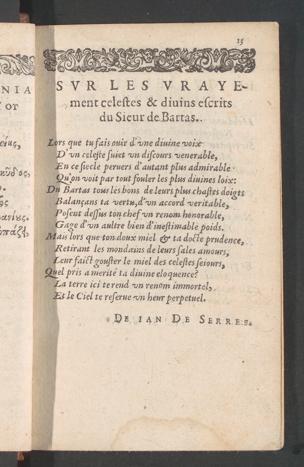 15
SVR LES VRAYE-
ment celestes & diuins escrits
du Sieur de Bartas.
Lors que tu fais ouir d'vne diuine voix
D'vn celeste suiet vn discours venerable,
En ce siecle peruers d'autant plus admirable
Qu'on voit par tout fouler les plus diuines loix:
Du Bartas tous les bons de leurs plus chastes doigts
Balançans ta vertu, d'vn accord veritable,
Posent dessus ton chef vn renom honorable,
Gage d'vn aultre bien d'inestimable poids.
Mais lors que ton doux miel & ta docte prudence,
Retirant les mondains de leurs sales amours,
Leur faict gouster le miel des celestes seiours,
Quel pris a merité ta diuine eloquence?
La terre ici te rend vn renom immortel,
Et le Ciel te reserue vn heur perpetuel.
DE IAN DE SERRES.
NIA